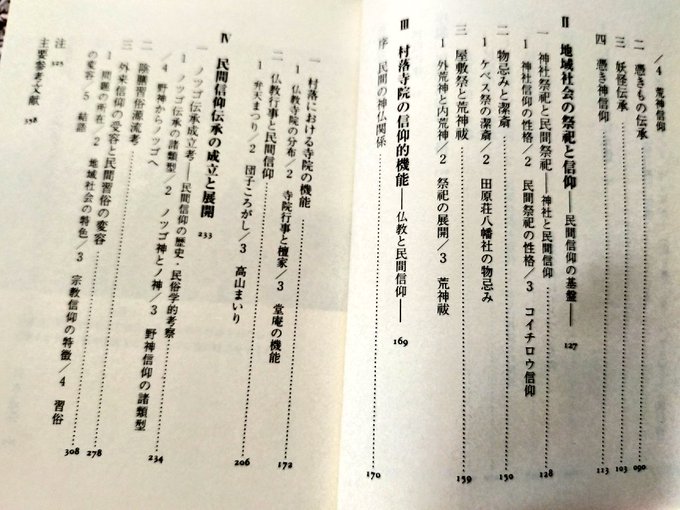 ／4 荒神信仰
二 憑きもの伝承……090
三 妖怪伝承……103
四 憑き神信仰……113
Ⅱ 地域社会の祭祀と信仰——民間信仰の基盤—— 127
一 神社祭祀と民間祭祀——神社と民間信仰……128
1 神社信仰の性格／2 民間祭祀の性格／3 コイチロウ信仰
二 物忌みと潔斎……150
1 ケベス祭の潔斎／2 田原荘八幡社の物忌み
三 屋敷祭と荒神祓……159
1 外荒神と内荒神／2 祭祀の展開／3 荒神祓
Ⅲ 村落寺院の信仰的機能——仏教と民間信仰—— 169
序 民間の神仏関係……170
一 村落における寺院の機能……172
1 仏教寺院の分布／2 寺院行事と檀家／3 堂庵の機能
二 仏教行事と民間信仰……206
1 弁天まつり／2 団子ころがし／3 高山まいり
Ⅳ 民間信仰伝承の成立と展開 233
一 ノツゴ伝承成立考——民間信仰の歴史・民俗学的考察……234
1 ノツゴ伝承の諸類型／2 ノツゴ神とノ神／3 野神信仰の諸類型
／4 野神からノツゴへ
二 除蝗習俗源流考……278
三 外来信仰の受容と民間習俗の変容……308
1 問題の所在／2 地域社会の特色／3 宗教信仰の特徴／4 習俗
の変容／5 結語
注 325
主要参考文献 358